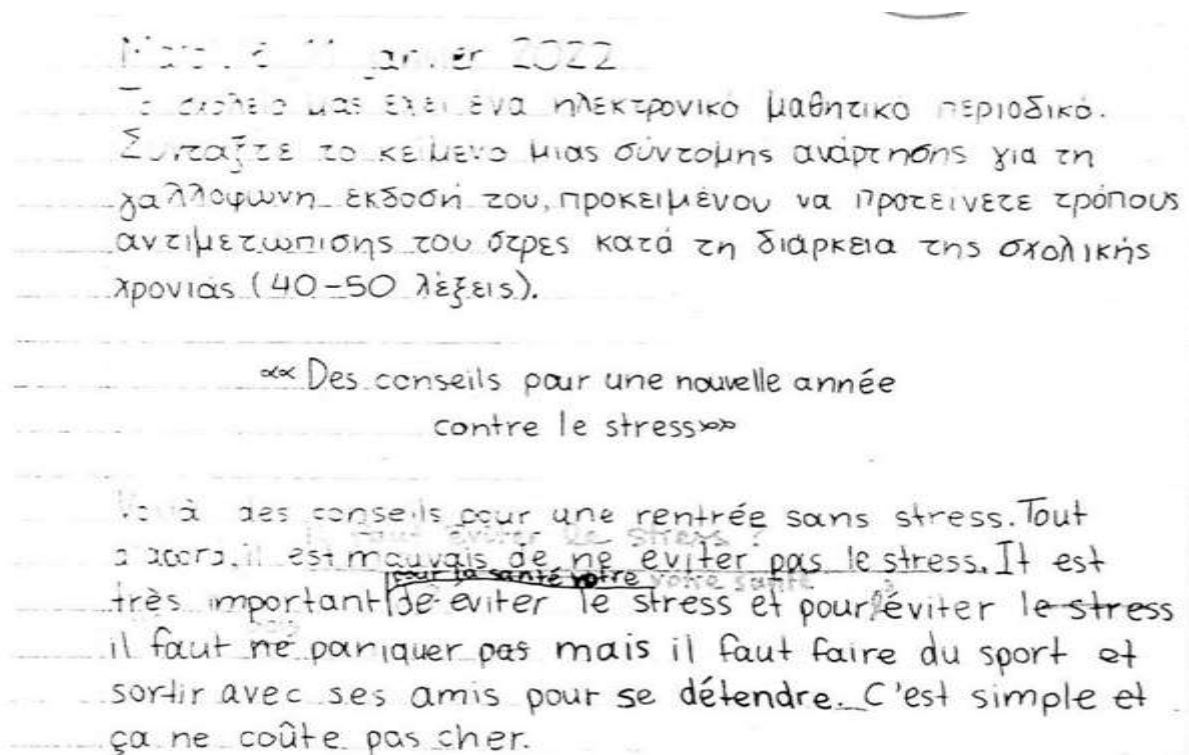 janvier 2022
Το σχολείο μας έχει ένα ηλεκτρονικό μαθητικό περιοδικό.
Συντάξτε το κείμενο μιας σύντομης ανάρτησης για τη
γαλλόφωνη έκδοσή του, προκειμένου να προτείνετε τρόπους
αντιμετώπισης του στρες κατά τη διάρκεια της σχολικής
χρονιάς (40-50 λέξεις).
«Des conseils pour une nouvelle année
contre le stress»
Voilà des conseils pour une rentrée sans stress. Tout
il faut éviter le stress?
d'accord, il est mauvais de ne eviter pas le stress. Il est
pour la santé votre votre santé
très important de éviter le stress et pour l'éviter le stress
il faut ne paniquer pas mais il faut faire du sport et
sortir avec ses amis pour se détendre. C'est simple et
ça ne coûte pas cher.